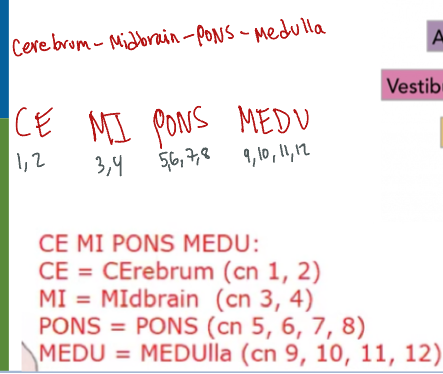 Cerebrum - Midbrain - PONS - Medulla
A
Vestib
CE MI PONS MEDU
1, 2 3, 4 5, 6, 7, 8 9, 10, 11, 12
CE MI PONS MEDU:
CE = CErebrum (cn 1, 2)
MI = MIdbrain (cn 3, 4)
PONS = PONS (cn 5, 6, 7, 8)
MEDU = MEDUlla (cn 9, 10, 11, 12)